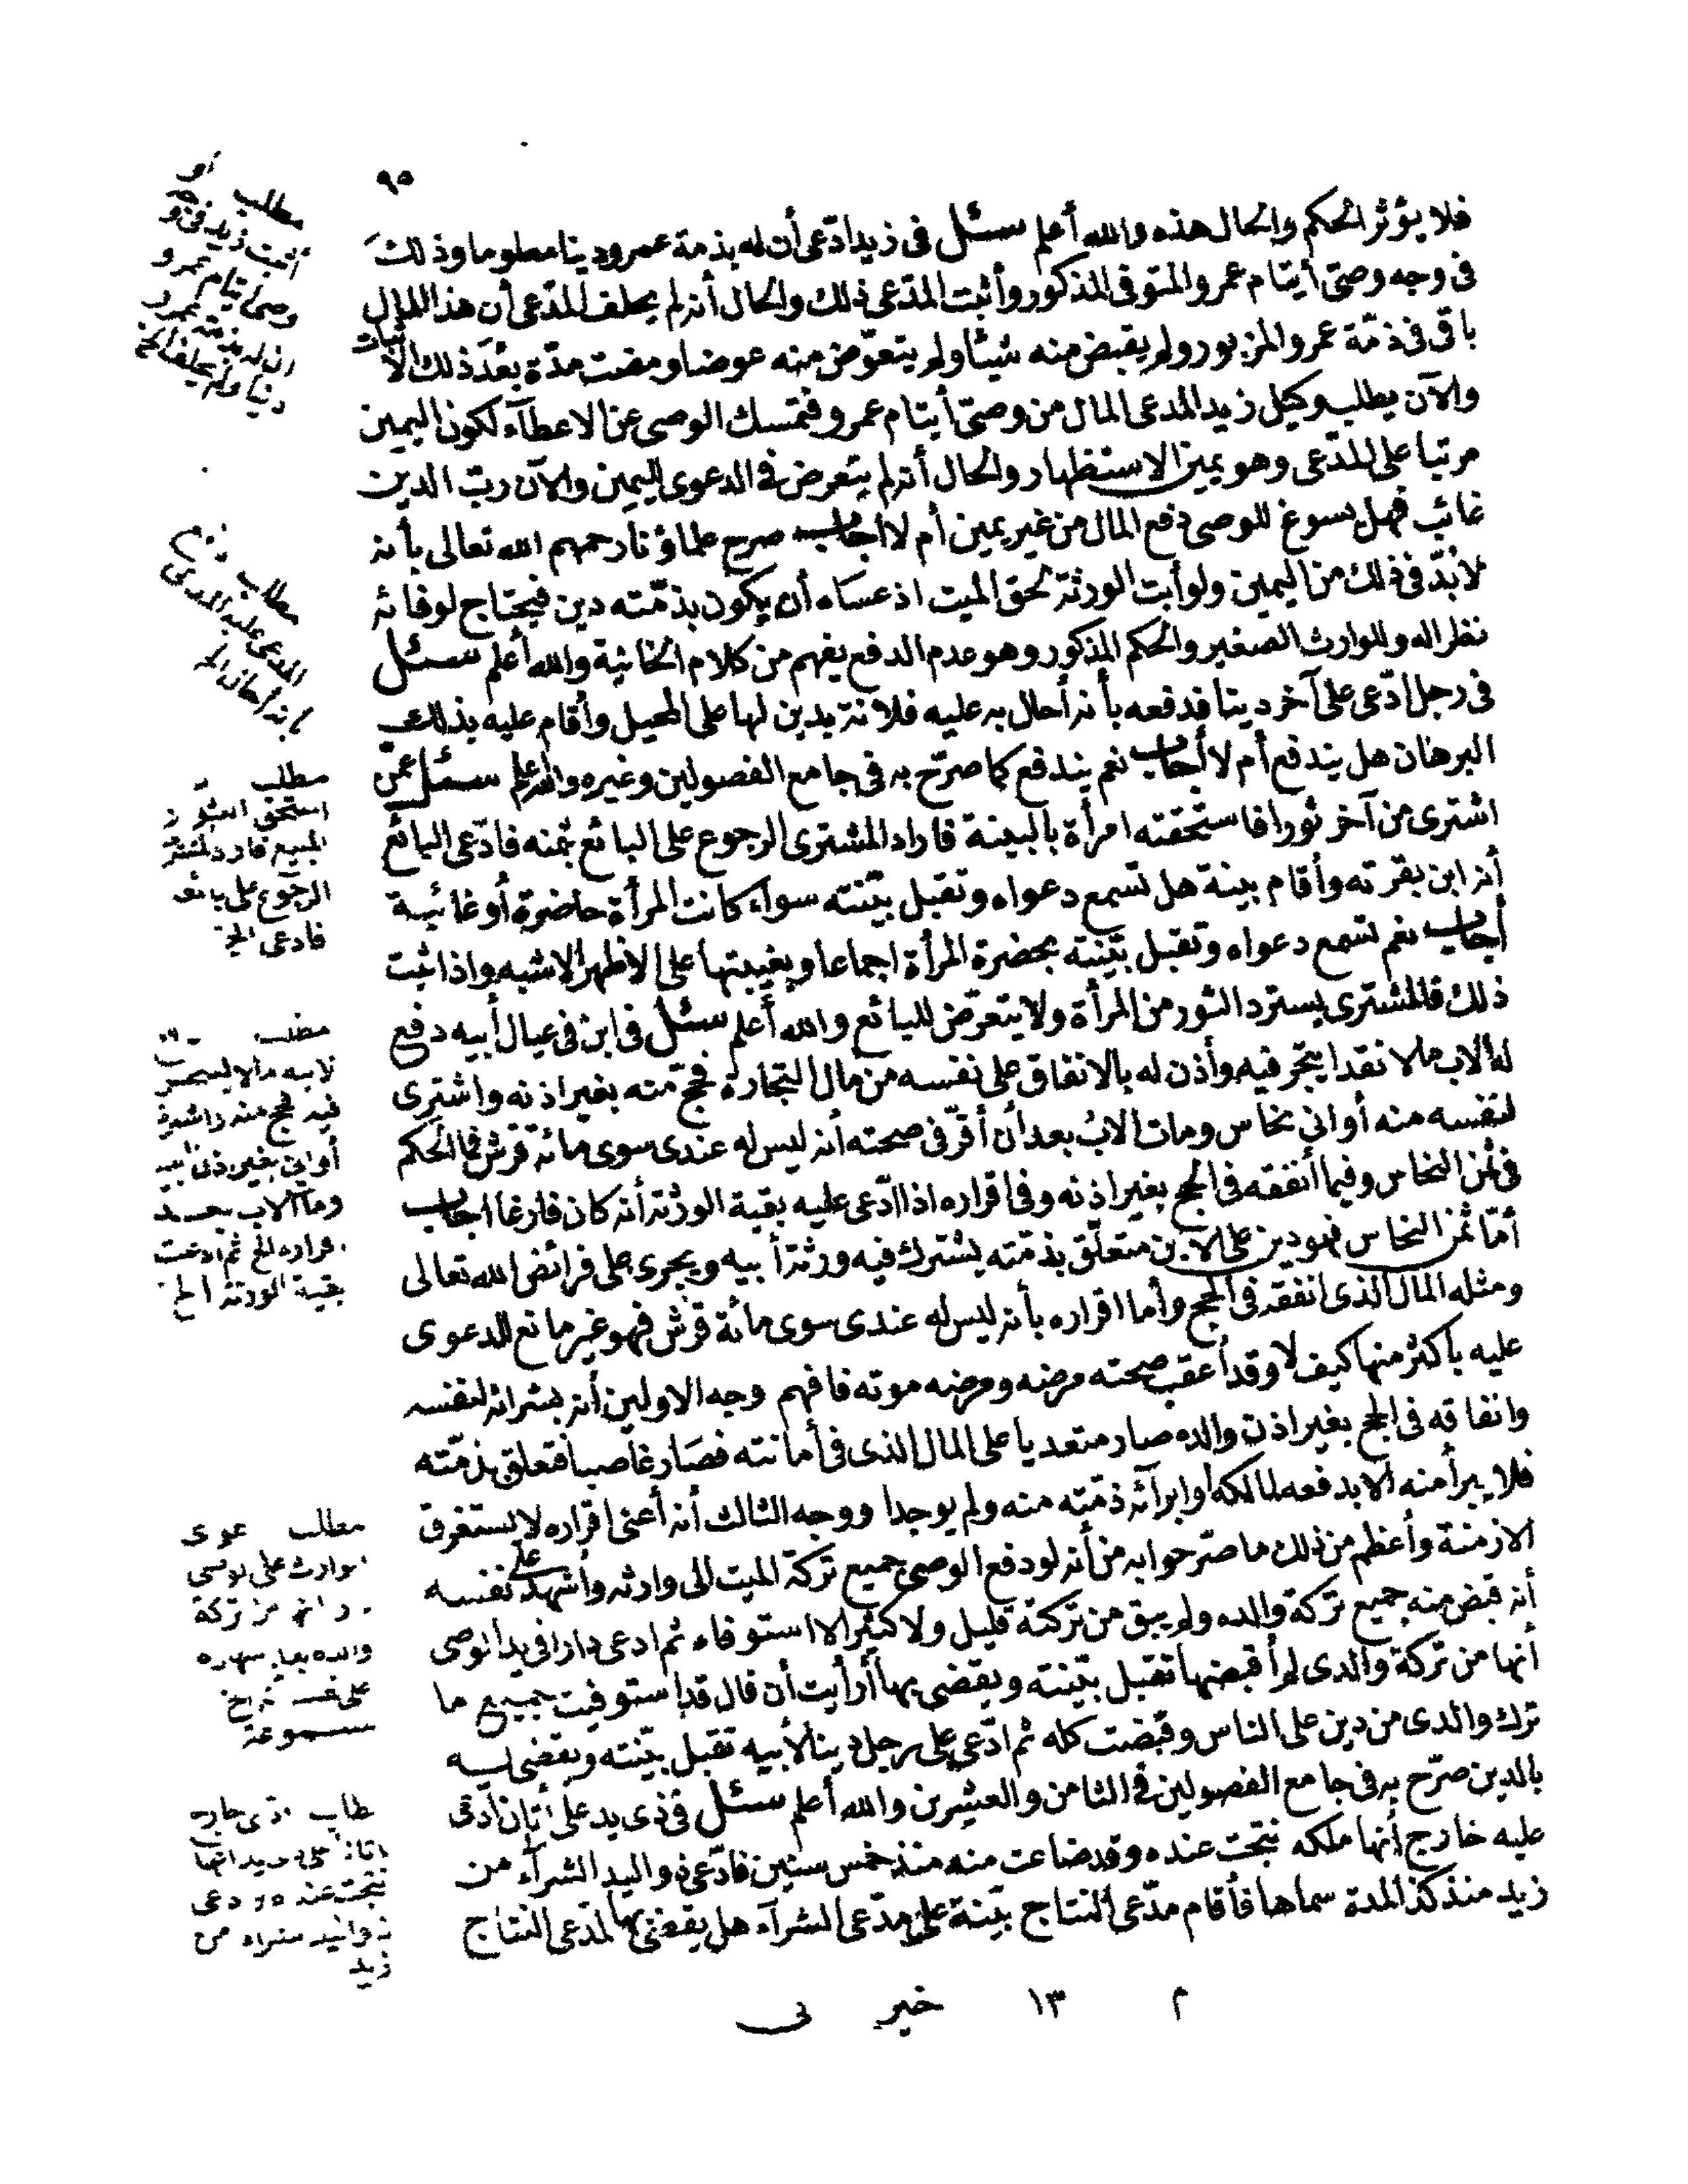 ٩٥
فلا يؤثر الحكم والحال هذه والله أعلم سئل فى زيد ادّعى أن له بذمة عمرو دينا معلوما وذلك
فى وجه وصىّ أيتام عمرو المتوفى المذكور وأثبت المدّعى ذلك والحال أنه لم يحلف المدّعى أن هذا المال
باقى فى ذمّة عمرو المزبور ولم يقبض منه شيئا ولم يتعوّض منه عوضا ومضت مدّة بعد ذلك الاثبات
والآن يطلب وكيل زيد المدعى المال من وصىّ أيتام عمرو فتمسك الوصى عن الاعطآء لكون اليمين
مرتبا على المدّعى وهو يمين الاستظهار والحال أنه لم يتعرض فى الدعوى لليمين والآن ربّ الدين
غائب فهل يسوغ للوصى دفع المال من غير يمين أم لا أجاب صرح علماؤنا رحمهم الله تعالى بأنه
لا بدّ فى ذلك من اليمين ولو أبت الورثة لحق الميت اذ عساه أن يكون بذمّته دين فيحتاج لوفائه
نظرا له وللوارث الصغير والحكم المذكور وهو عدم الدفع يفهم من كلام الخانية والله أعلم سئل
فى رجل ادّعى على آخر دينا فدفعه بأنه أحال به عليه فلانة بدين لها على المحيل وأقام عليه بذلك
البرهان هل يندفع أم لا أجاب نعم يندفع كما صرّح به فى جامع الفصولين وغيره والله أعلم سئل عمّن
اشترى من آخر ثورا فاستحقته امرأة بالبينة فاراد المشترى الرجوع على البائع بثمنه فادّعى البائع
أنه ابن بقرته وأقام بينة هل تسمع دعواه وتقبل بيّنته سواء كانت المرأة حاضرة أو غائبة
أجاب نعم تسمع دعواه وتقبل بيّنته بحضرة المرأة اجماعا وبغيبتها على الأظهر الاشبه واذا ثبت
ذلك فالمشترى يسترد الثور من المرأة ولا يتعرّض للبائع والله أعلم سئل فى ابن فى عيال أبيه دفع
له الاب مالا نقدا يتجر فيه وأذن له بالانفاق على نفسه من مال التجارة فحجّ منه بغير اذنه واشترى
لنفسه منه أوانى نحاس ومات الاب بعد أن أقرّ فى صحته أنه ليس له عندى سوى مائة قرش فما الحكم
فى ثمن النحاس وفيما أنفقه فى الحج بغير اذنه وفى اقراره اذا ادّعى عليه بقية الورثة أنه كان فارغا اجاب
أمّا ثمن النحاس فهو دين على الابن متعلّق بذمّته يشترك فيه ورثة أبيه ويجرى على فرائض الله تعالى
ومثله المال الذى انفقه فى الحج وأما اقراره بأنه ليس له عندى سوى مائة قرش فهو غير مانع للدعوى
عليه بأكثر منها كيف لا وقد أعقب صحته مرضه ومرضه موته فافهم وجه الاولين أنه بشرائه لنفسه
وانفاقه فى الحج بغير اذن والده صار متعديا على المال الذى فى أمانته فصار غاصبا فتعلق بذمّته
فلا يبرأ منه الا بدفعه لمالكه أو ابرآئه ذمّته منه ولم يوجدا ووجه الثالث أنه أعنى اقراره لا يستغرق
الازمنة وأعظم من ذلك ما صرّحوا به من أنه لو دفع الوصى جميع تركة الميت الى وارثه وأشهد على نفسه
أنه قبض منه جميع تركة والده ولم يبق من تركته قليل ولا كثير الا استوفاه ثم ادعى دارا فى يد الوصى
أنها من تركة والدى لم أقبضها تقبل بيّنته ويقضى بها أرأيت أن قال قد استوفيت جميع ما
ترك والدى من دين على الناس وقبضت كله ثم ادّعى على رجل دينا لأبيه تقبل بيّنته ويقضى له
بالدين صرّح به فى جامع الفصولين فى الثامن والعشرين والله أعلم سئل فى ذى يد على أتان ادّعى
عليه خارج أنها ملكه نتجت عنده وقد ضاعت منه منذ خمس سنين فادّعى ذو اليد الشرآء من
زيد منذ كذا لمدة سماها فأقام مدّعى النتاج بيّنة على مدّعى الشرآء هل يقضى بها لمدّعى النتاج
مطلب
وصى أيتام عمرو
مطلب
المدعى عليه
بأنه أحال
مطلب
استحق
المبيع فاراد المشترى
الرجوع على بائعه
فادعى الخ
مطلب
لابنه مالا
فيه فحج منه واشترى
أوانى بغير اذن أبيه
ومات الاب بعد
اقراره الخ ثم ادعت
بقية الورثة الخ
مطلب دعوى
الوارث على الوصى
من تركة
والده بعد اشهاده
على نفسه
مسموعة
مطلب ادعى خارج
أتانا على ذى يد انها
نتجت عنده وادعى
ذو اليد شراء من
زيد
م ١٣ خير نى